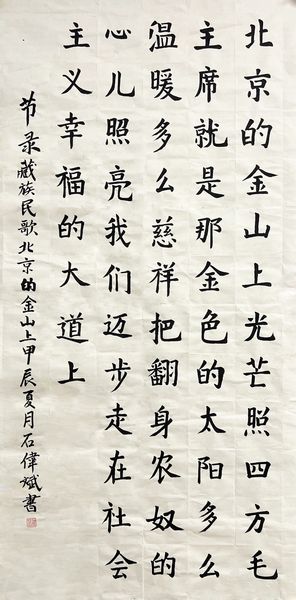 北京的金山上光芒照四方毛
主席就是那金色的太阳多么
温暖多么慈祥把翻身农奴的
心儿照亮我们迈步走在社会
主义幸福的大道上
节录藏族民歌北京的金山上甲辰夏月石偉斌書